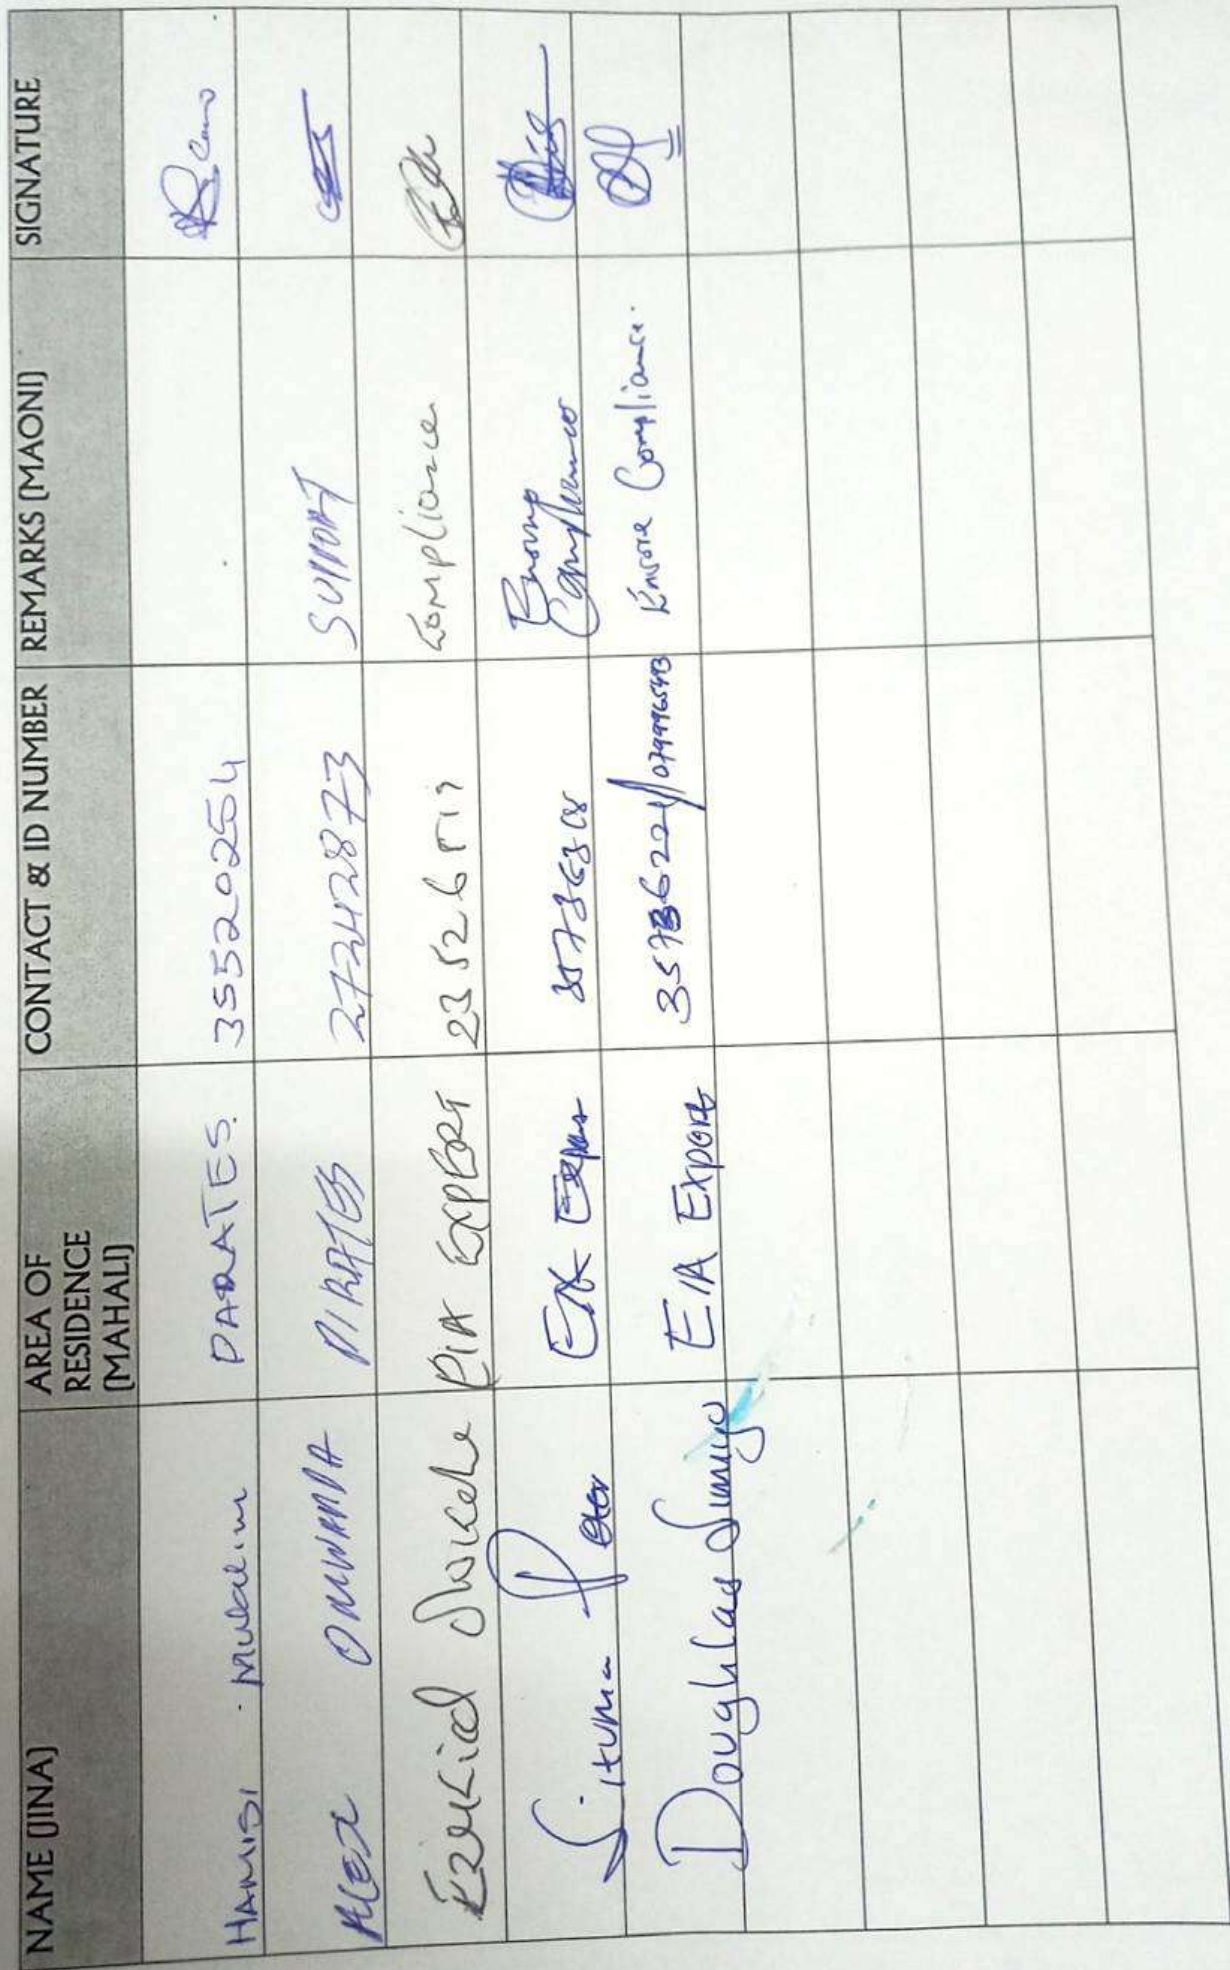 NAME (JINA) AREA OF RESIDENCE (MAHALI) CONTACT & ID NUMBER REMARKS (MAONI) SIGNATURE
HAMISI MWALIM PARATES. 35520254
ALEX OMWANDA PIRATES 27242873 SUPPORT
Ezekiel EIA EXPERT Compliance
Situma Peter EIA Ensure Compliance
Doughlas Simiyu EIA Experts 0799965493 Ensure Compliance.